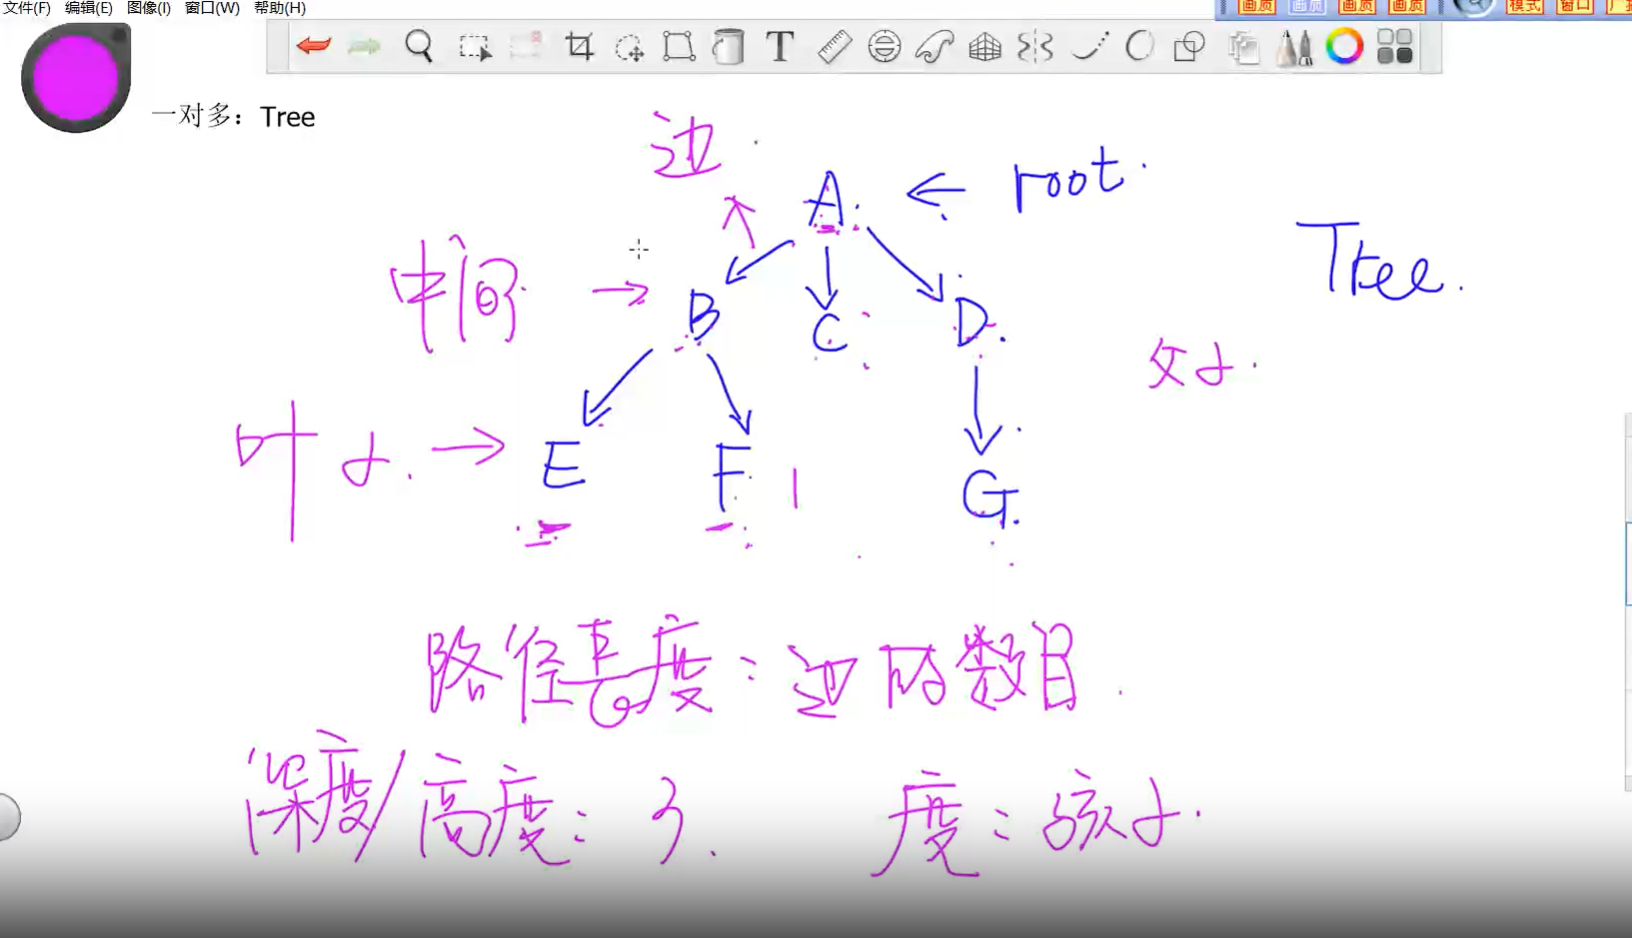 文件(F) 编辑(E) 图像(I) 窗口(W) 帮助(H)
画质 画质 画质 画质 模式 窗口
一对多：Tree
边
A ← root
Tree
中间 → B C D
父子
叶子 → E F G
路径长度：边的数目
深度/高度：3
度：孩子